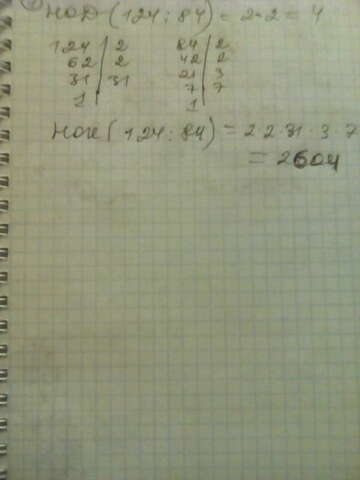 НОД (124; 84) = 2·2 = 4
124 | 2 84 | 2
62 | 2 42 | 2
31 | 31 21 | 3
1 | 7 | 7
1 |
НОК (124; 84) = 2 2 31 · 3 · 7
= 2604